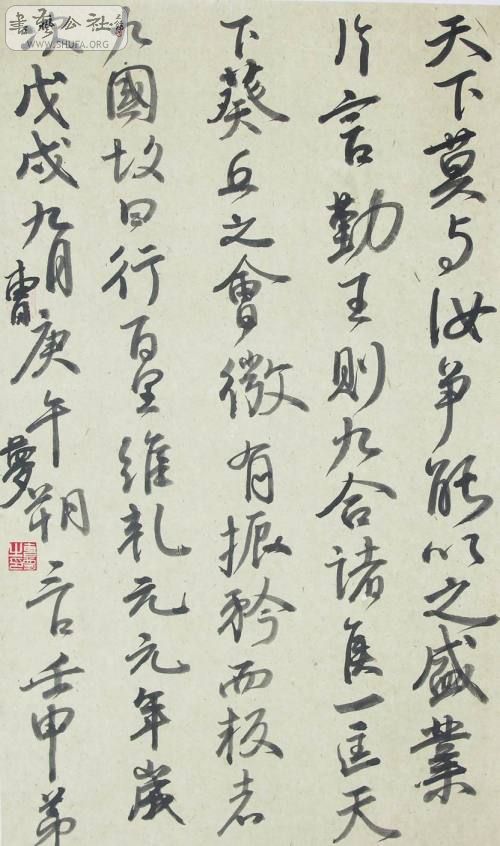 天下莫与汝爭能以之盛業
片言勤王則九合諸侯一匡天
下葵丘之會微有振矜而板者
九國故曰行百里維乾元元年歲
次戊戌九月庚午朔三日壬申第
曹夢
書藝公社
WWW.SHUFA.ORG